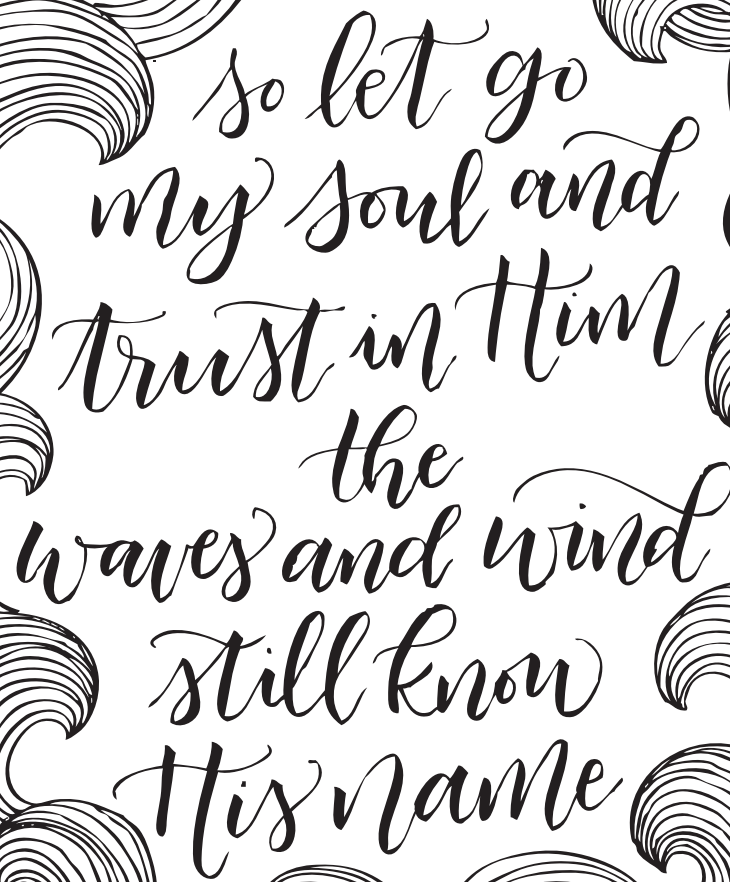 so let go
my soul and
trust in Him
the
waves and wind
still know
His name